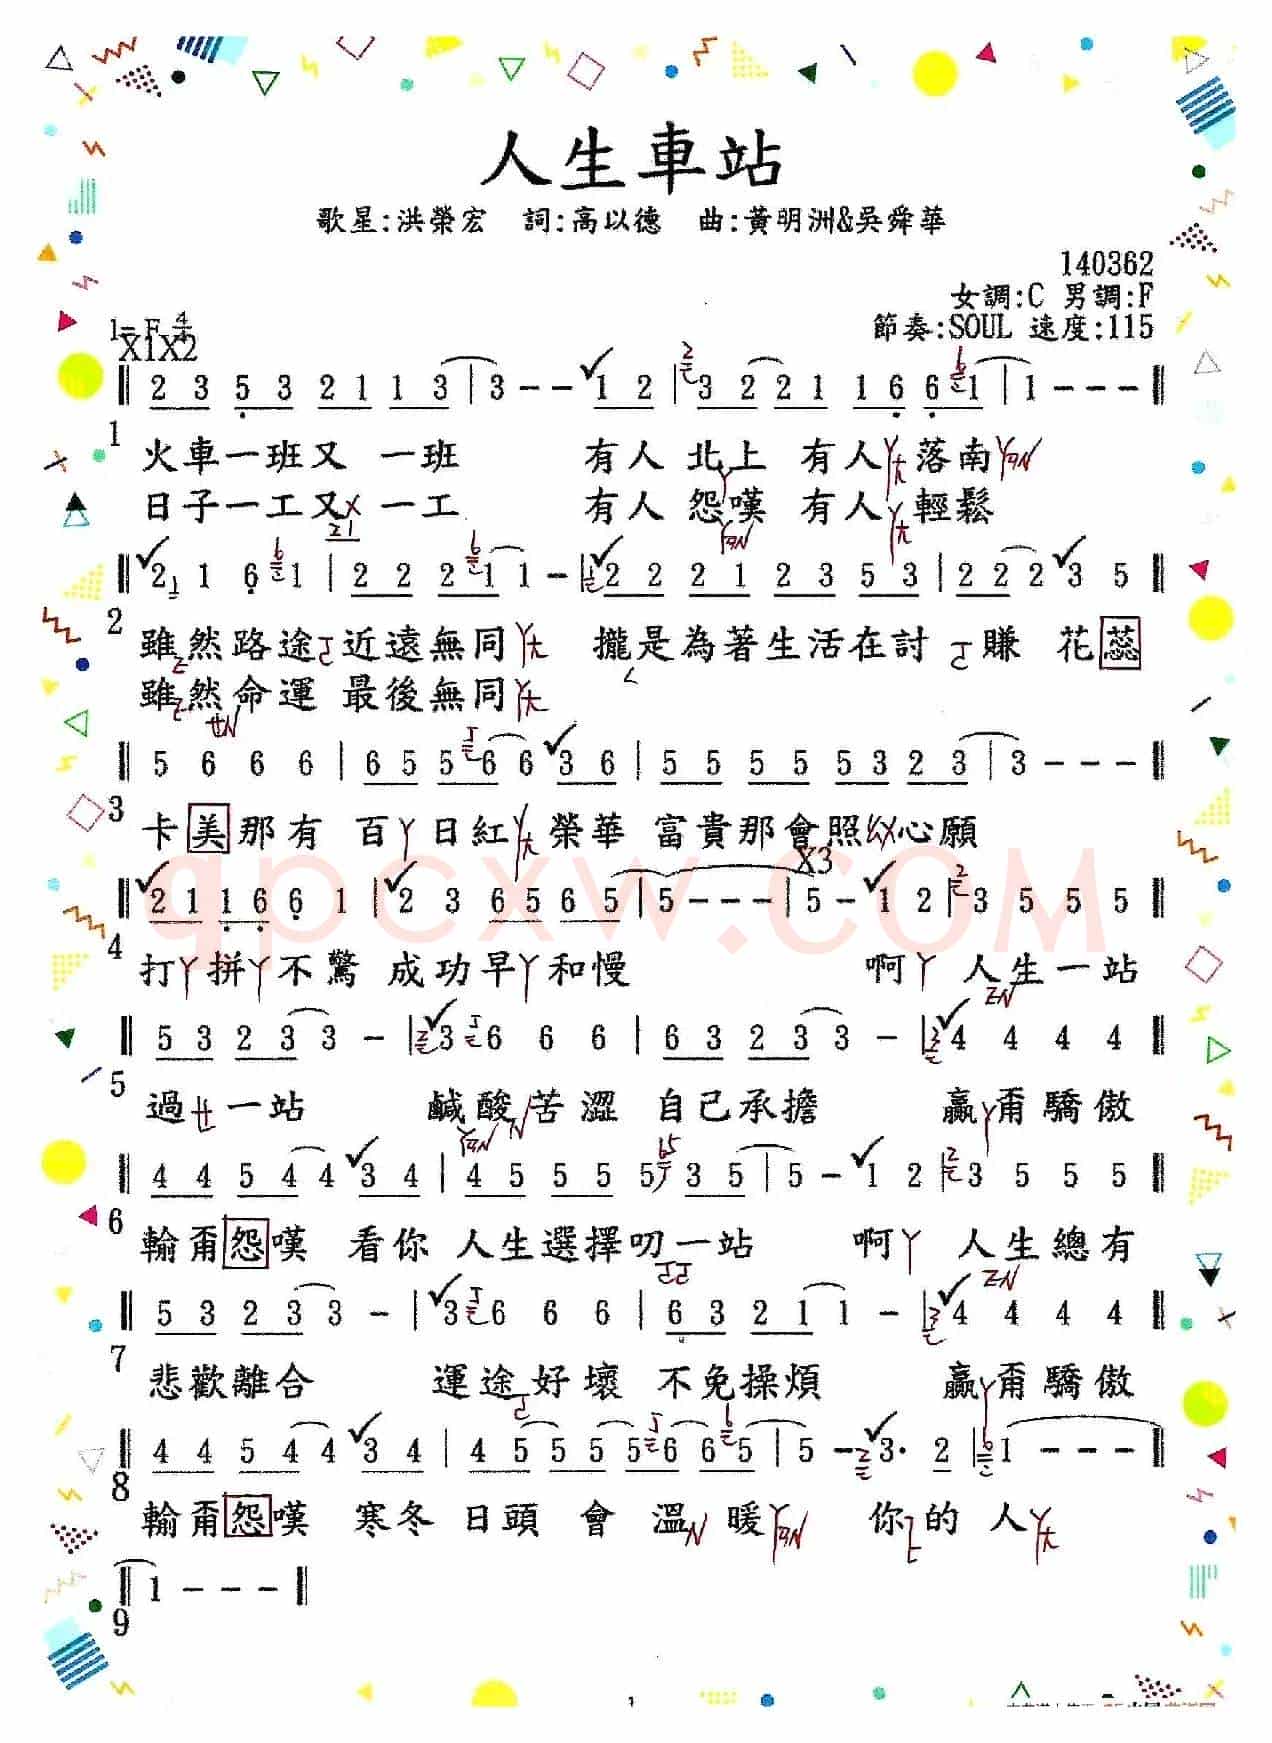 人生車站
歌星:洪榮宏 詞:高以德 曲:黃明洲&吳舜華
140362
女調:C 男調:F
節奏:SOUL 速度:115
1=F 4/4
X1X2
2 3 5 3 2 1 1 3 | 3 - - 1 2 | 3 2 2 1 1 6 6 1 | 1 - - -
1
火車一班又 一班 有人 北上 有人 落南
日子一工又 一工 有人 怨嘆 有人 輕鬆
2 1 6 1 | 2 2 2 1 1 - | 2 2 2 1 2 3 5 3 | 2 2 2 3 5
2
雖然路途 近遠無同 攏是為著生活在討 賺 花蕊
雖然命運 最後無同
5 6 6 6 | 6 5 5 6 6 3 6 | 5 5 5 5 5 3 2 3 | 3 - - -
3
卡美那有 百 日紅 榮華 富貴那會照 心願
X3
2 1 1 6 6 1 | 2 3 6 5 6 5 | 5 - - - | 5 - 1 2 | 3 5 5 5
4
打 拼 不驚 成功早 和慢 啊 人生一站
5 3 2 3 3 - | 3 6 6 6 | 6 3 2 3 3 - | 4 4 4 4
5
過 一站 鹹酸 苦澀 自己承擔 贏 甭驕傲
4 4 5 4 4 3 4 | 4 5 5 5 5 3 5 | 5 - 1 2 | 3 5 5 5
6
輸甭怨嘆 看你 人生選擇叨一站 啊 人生總有
5 3 2 3 3 - | 3 6 6 6 | 6 3 2 1 1 - | 4 4 4 4
7
悲歡離合 運途好壞 不免操煩 贏 甭驕傲
4 4 5 4 4 3 4 | 4 5 5 5 5 6 6 5 | 5 - 3. 2 | 1 - - -
8
輸甭怨嘆 寒冬 日頭 會 溫 暖 你 的 人
1 - - -
9
qpcxw.COM
1